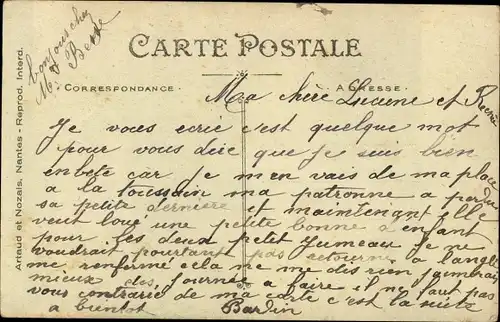 bonjours chez
Mr Berte
CARTE POSTALE
CORRESPONDANCE
ADRESSE
Ma chère Lucienne et
Je vous ecrie c'est quelque mot
pour vous dire que je suis bien
enbete car je m'en vais de ma place
a la toussain ma patronne a perdu
sa petite derniere et maintenant elle
veut loué une petite bonne a enfant
pour les deux petit Jumeau je ne
voudrait pourtant pas retourné a
me renfermé cela ne me dis rien j'aimerais
mieux des journée a faire il ne faut pas
vous contrarié de ma carte c'est la suite
a bientot Bardin
Artaud et Nozais, Nantes - Reprod. Interd.